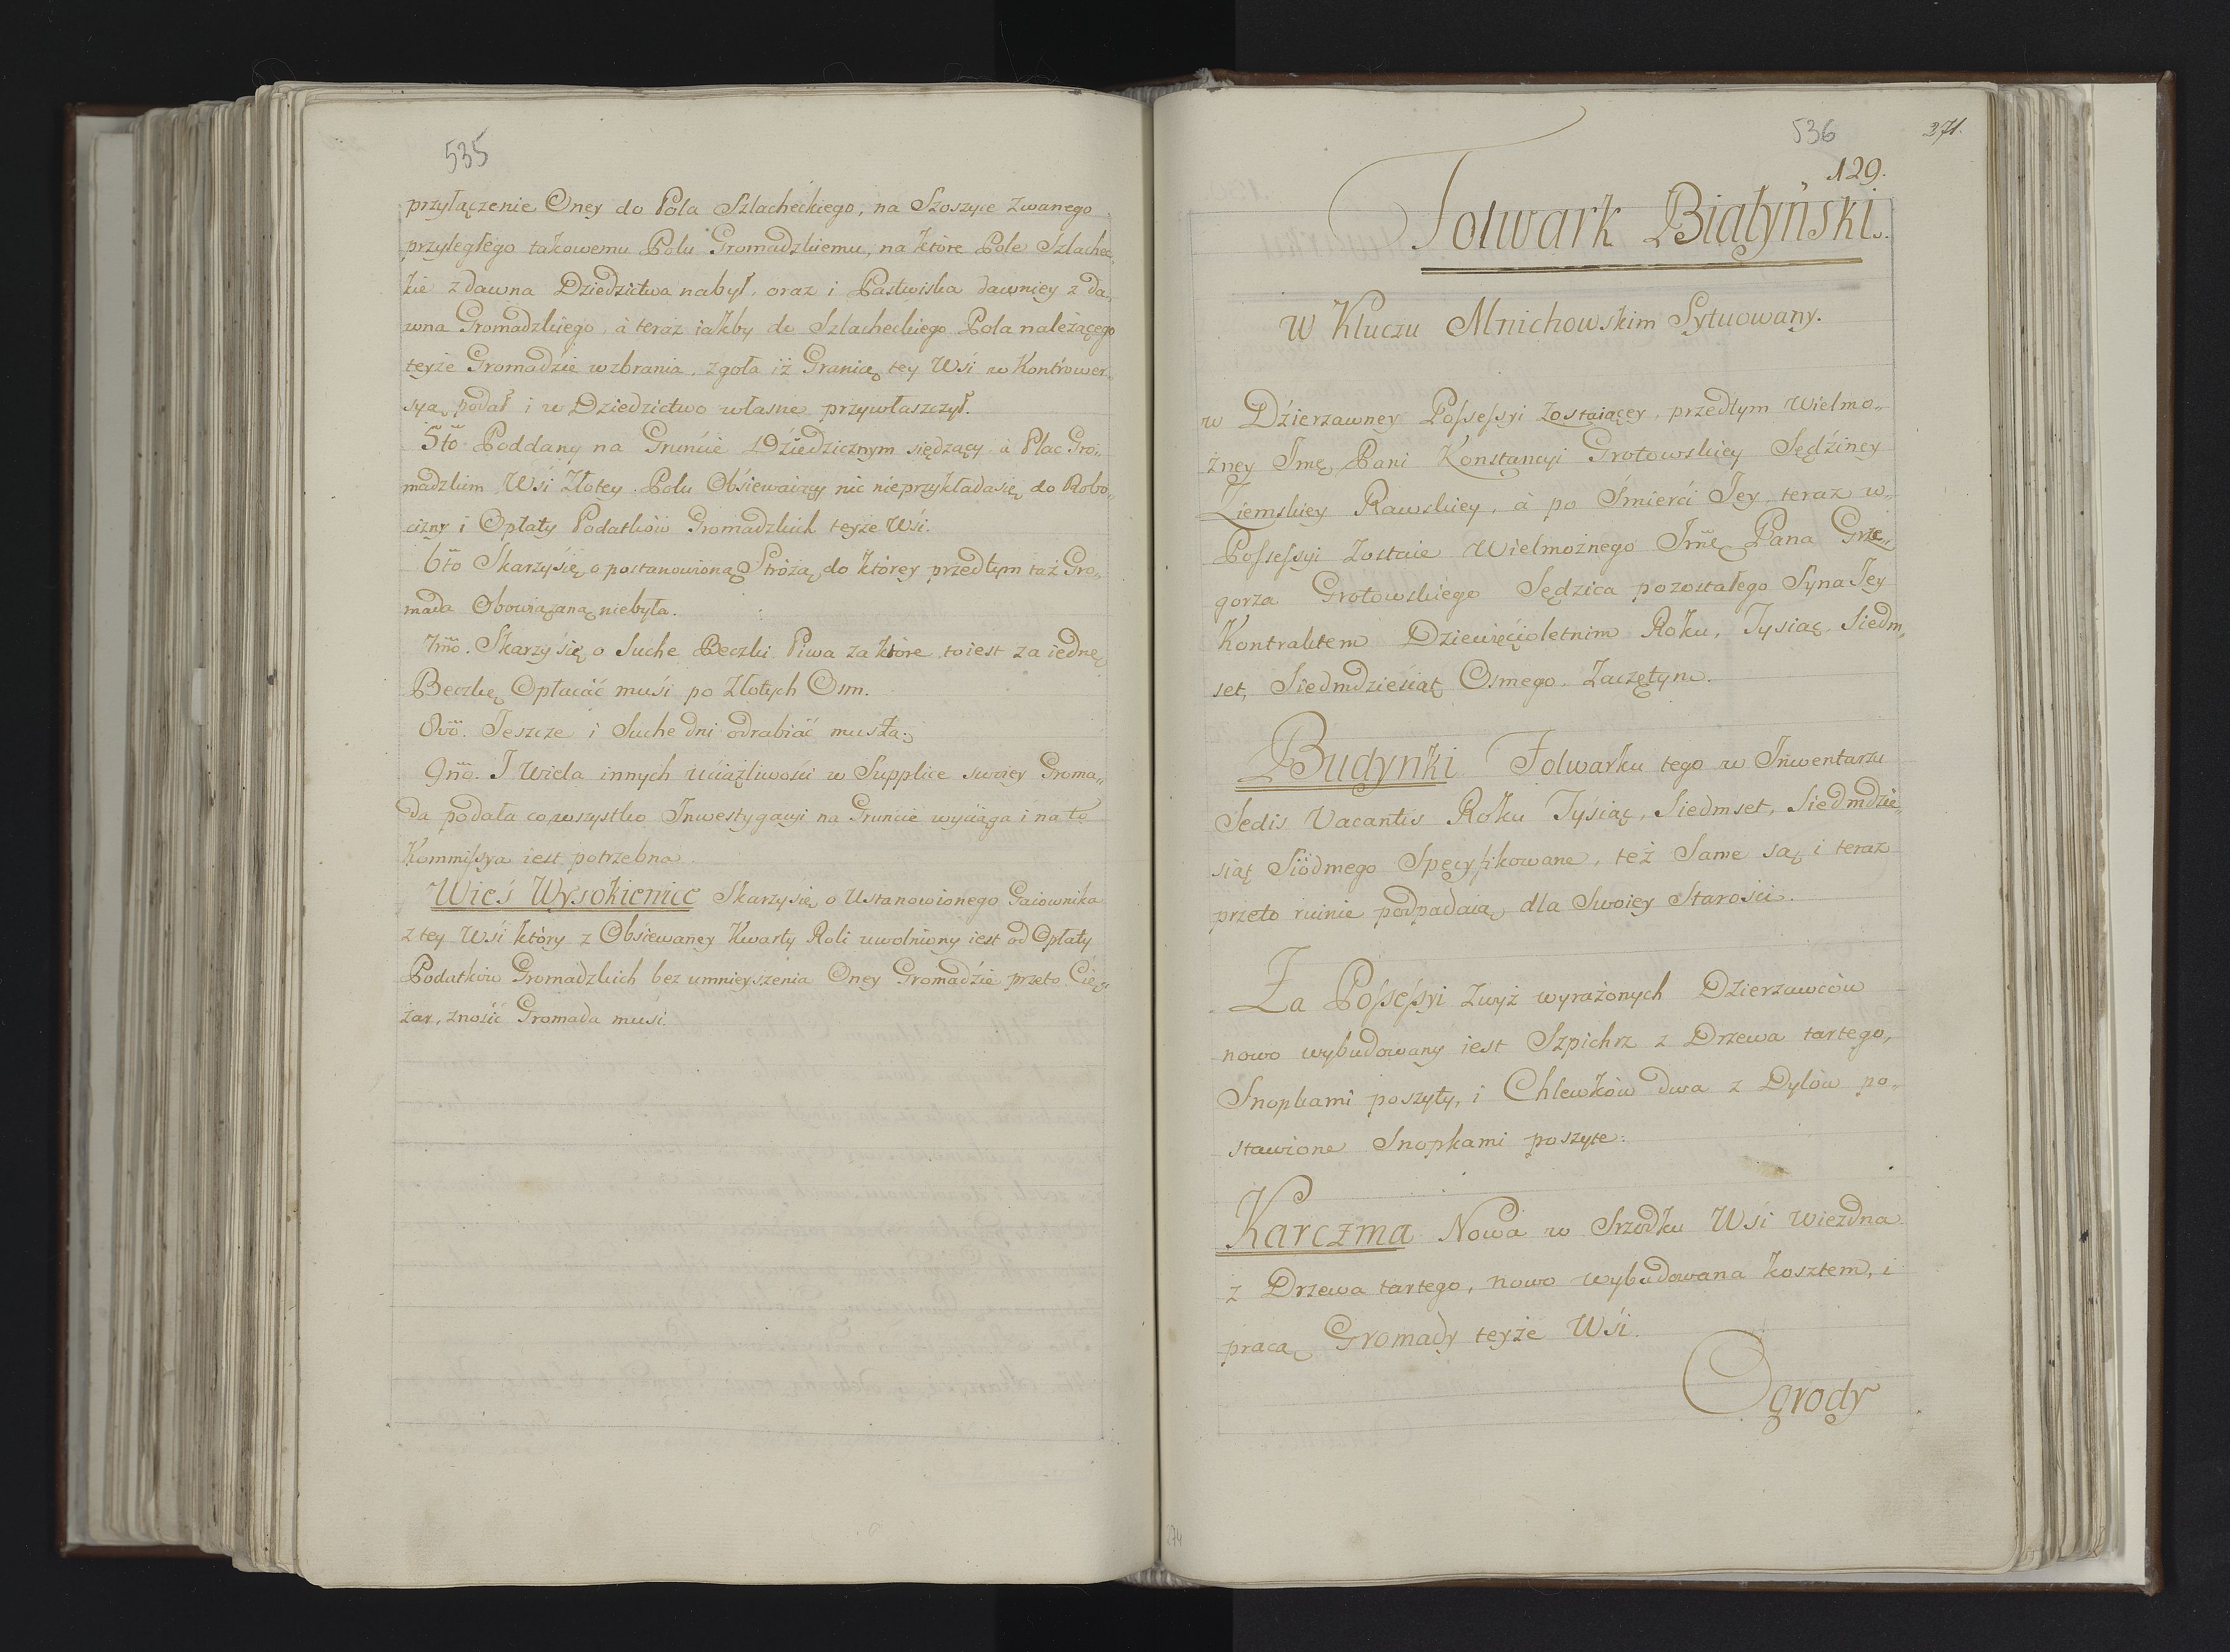 535
przyłączenie Oney do Pola Szlacheckiego, na Szoszyce zwanego
przyległego takowemu Polu Gromadzkiemu, na które Pole Szlachec„
kie z dawna Dziedzictwa nabył, oraz i Pastwiska dawniey z da„
wna Gromadzkiego, à teraz iakby do Szlacheckiego Pola należącego
teyże Gromadźie wzbrania, zgoła iż Granicę tey Wśi w Kontrower„
syą podał i w Dziedzictwo własne przywłaszczył.
5to Poddany na Grunćie Dźiedzicznym siędzący à Plac Gro„
madzkim Wśi Złotey Polu Obśiewaiący nic nieprzykłada się do Robo„
cizny i Opłaty Podatków Gromadzkich teyże Wśi.
6to Skarzy się o postanowioną Stróżą do którey przedtym taż Gro„
mada Obowiązaną niebyła.
7mo. Skarzy się o Suche Beczki Piwa za które to iest za iednę
Beczkę Opłacać muśi po Złotych Osm.
8vo. Jeszcze i Suche dni odrabiać muszą.
9no. I Wiela innych ućiążliwośći w Supplice swoiey Groma„
da podała co wszystko Inwestygacyi na Grunćie wyćiąga i na to
Kommissya iest potrzebna
Wieś Wysokienice Skarzy się o Ustanowionego Gaiownika
z tey Wśi który z Obśiewaney Kwarty Roli uwolniony iest od Opłaty
Podatków Gromadzkich bez umnieyszenia Oney Gromadźie przeto Cię„
żar, znośić Gromada muśi.
536
271.
129.
Folwark Białyński.
W Kluczu Mnichowskim Sytuowany.
w Dźierzawney Possessyi zostaiącey, przedtym Wielmo„
żney Jmę Pani Konstancyi Grotowskiey Sędźiney
Ziemskiey Rawskiey, à po Śmierći Jey, teraz w
Possessyi zostaie Wielmożnego Jmę Pana Grze„
gorza Grotowskiego Sędzica pozostałego Syna Jey
Kontraktem Dziewięćioletnim Roku, Tysiąc, Siedm„
set, Siedmdziesiąt Osmego Zaczętym.
Budynki Folwarku tego w Inwentarzu
Sedis Vacantis Roku Tyśiąc, Siedmset, Siedmdzie„
siąt Siódmego Specyfikowane, też Same są i teraz
przeto ruinie podpadaią dla Swoiey Starośći.
Za Possessyi zwyż wyrażonych Dzierzawców
nowo wybudowany iest Szpichrz z Drzewa tartego,
Snopkami poszyty, i Chlewków dwa z Dylów po„
stawione Snopkami poszyte.
Karczma Nowa w Srzodku Wśi wiezdna
z Drzewa tartego, nowo wybudowana kosztem, i
pracą Gromady teyże Wśi.
Ogrody
274